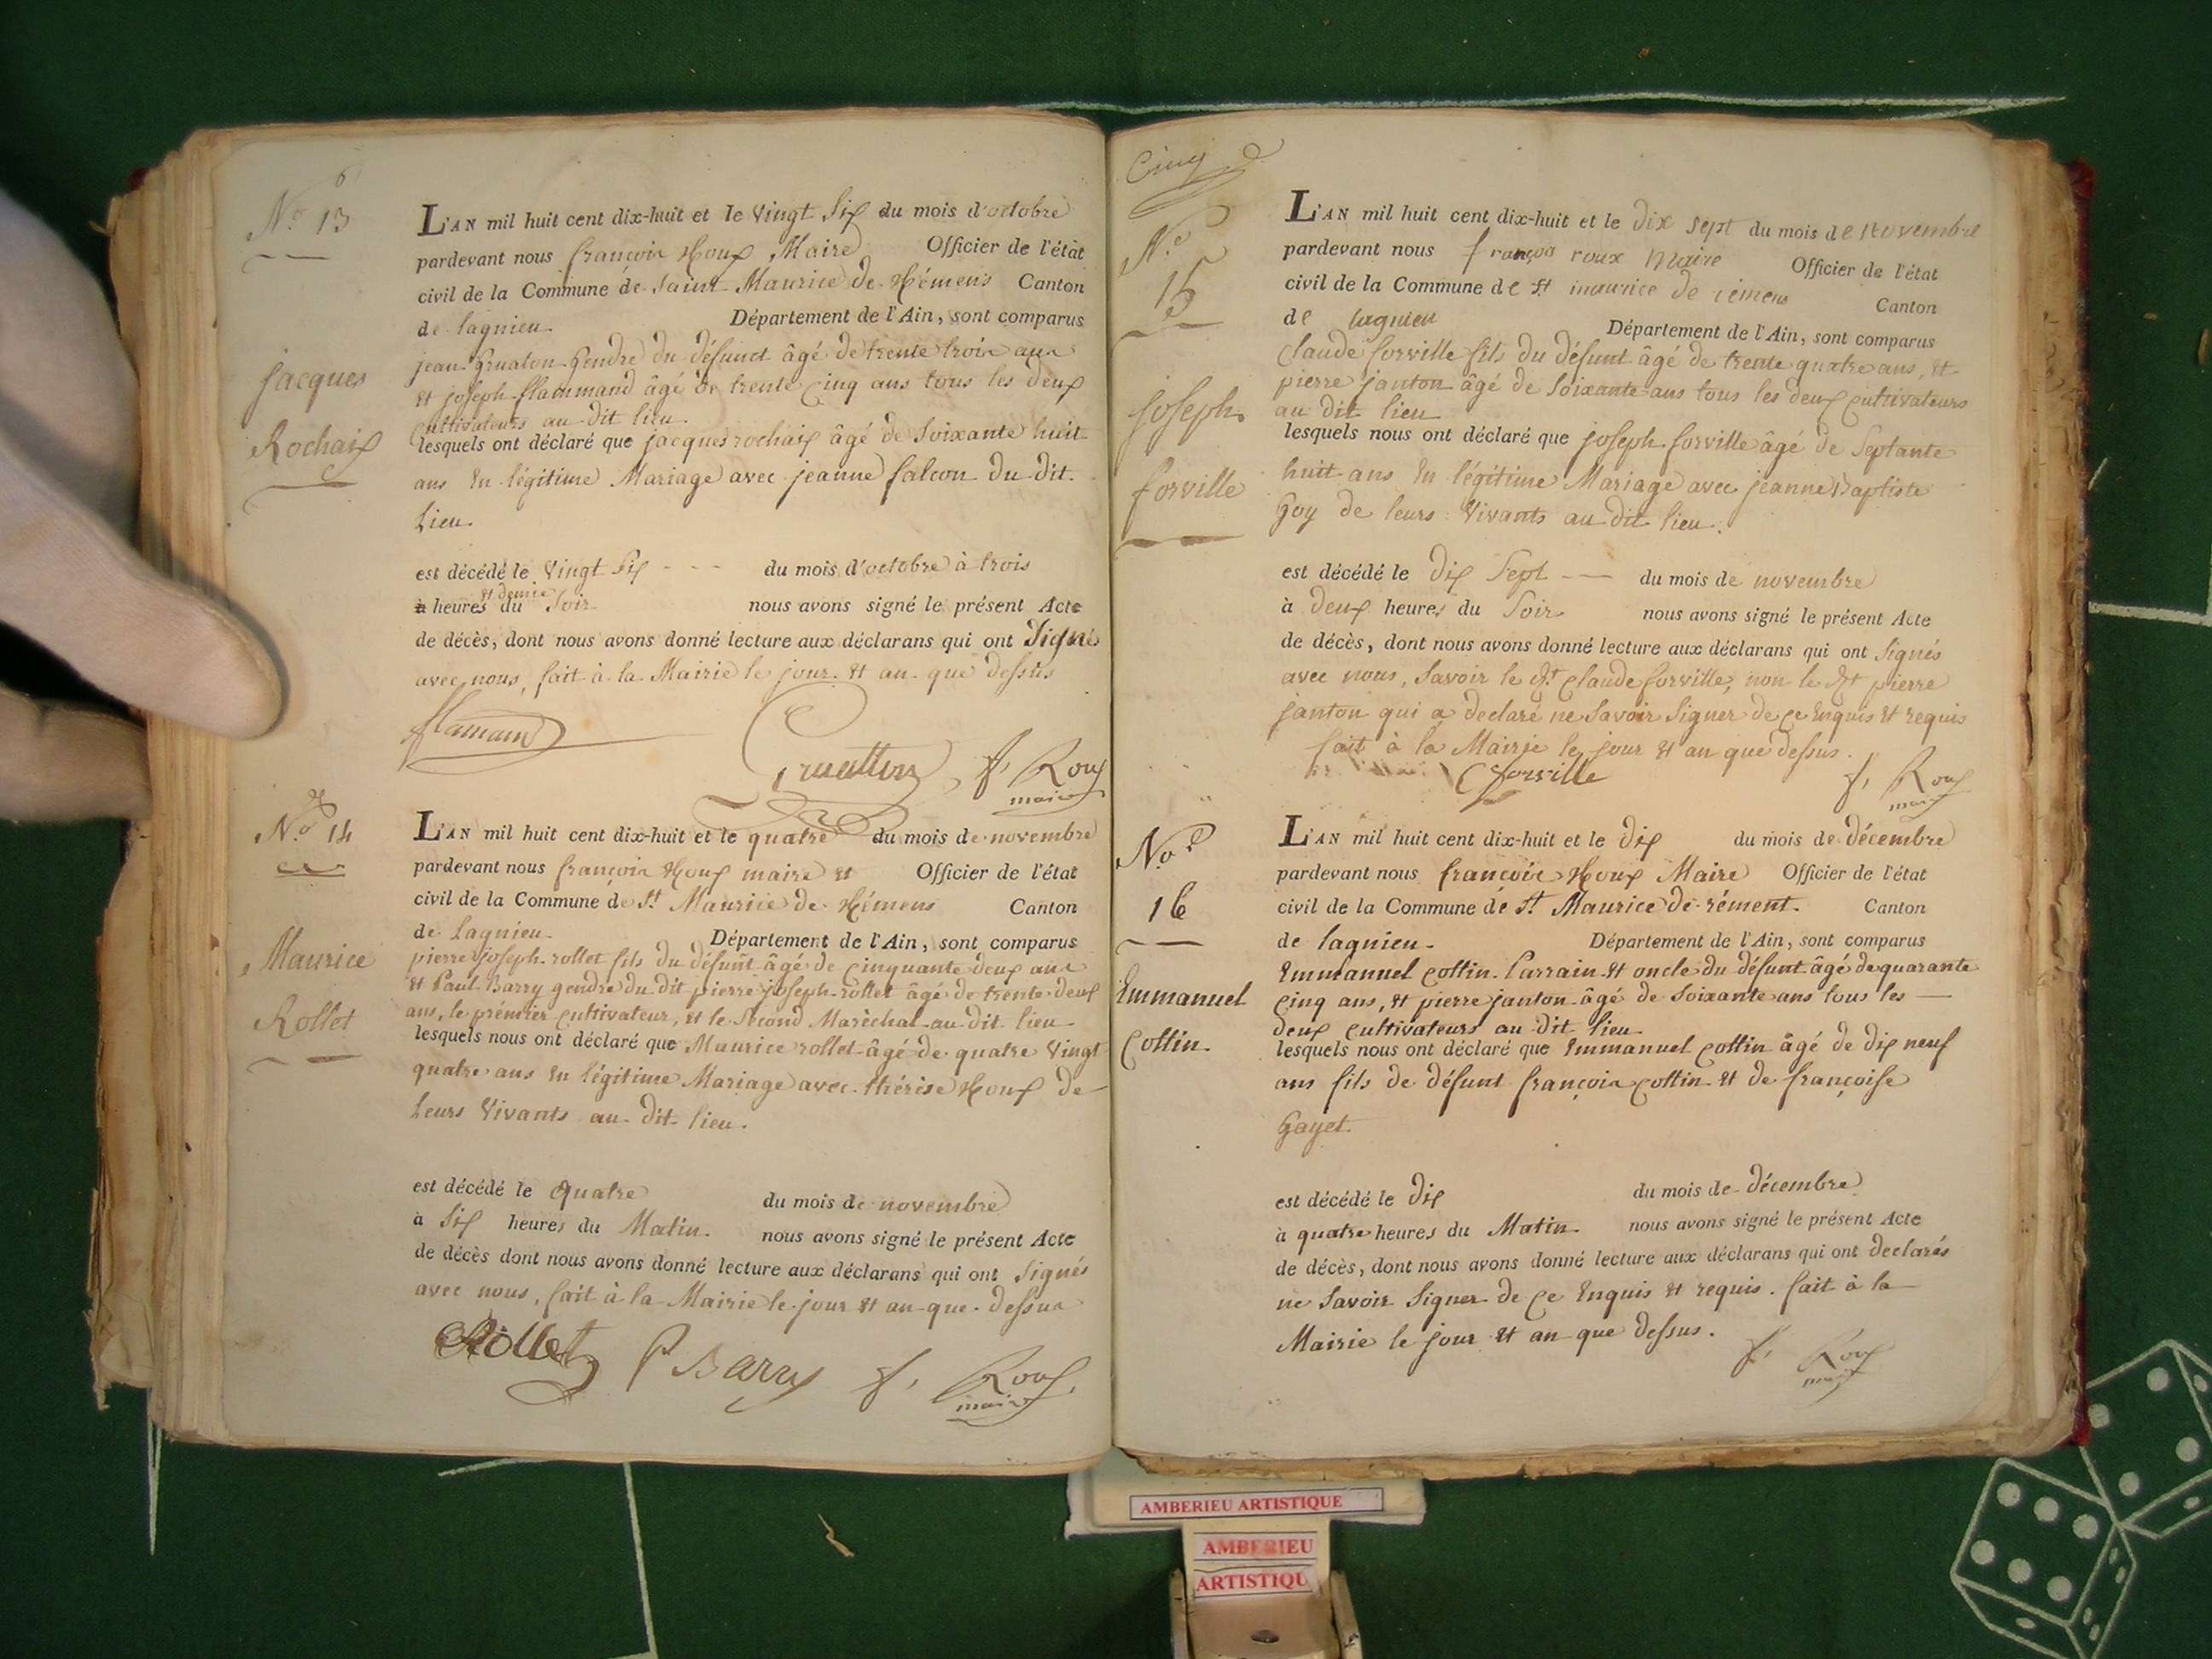 No 13
Jacques
Rochaix
L'AN mil huit cent dix-huit et le vingt six du mois d'octobre
pardevant nous françois Roux Maire Officier de l'état
civil de la Commune de Saint Maurice de Rémens Canton
de lagnieu. Département de l'Ain, sont comparus
jean Gruaton Gendre du défunct âgé de trente trois ans
et joseph flammand âgé de trente cinq ans tous les deux
cultivateurs au dit lieu.
lesquels ont déclaré que jacques rochaix âgé de soixante huit
ans En légitime Mariage avec jeanne falcon du dit
Lieu.
est décédé le vingt six - - - du mois d'octobre à trois
et demie
à heures du soir nous avons signé le présent Acte
de décès, dont nous avons donné lecture aux déclarans qui ont signés
avec nous, fait à la Mairie le jour et an que dessus
flamand
Gruatton f, Roux
maire
No 14
Maurice
Rollet
L'AN mil huit cent dix-huit et le quatre du mois de novembre
pardevant nous françois Roux maire et Officier de l'état
civil de la Commune de St Maurice de Rémens Canton
de Lagnieu. Département de l'Ain, sont comparus
pierre joseph rollet fils du défunt âgé de cinquante deux ans
et Paul Barry gendre du dit pierre joseph rollet âgé de trente deux
ans, le prémier cultivateur, et le second Maréchal au dit lieu
lesquels nous ont déclaré que Maurice rollet âgé de quatre vingt
quatre ans En légitime Mariage avec thérèse Roux de
Leurs vivants au dit lieu.
est décédé le quatre du mois de novembre
à six heures du Matin. nous avons signé le présent Acte
de décès dont nous avons donné lecture aux déclarans qui ont signés
avec nous, fait à la Mairie le jour et an que dessus
Rollet P Barry f, Roux
maire
Cinq
No
15
joseph
forville
L'AN mil huit cent dix-huit et le dix sept du mois de novembre
pardevant nous françois roux maire Officier de l'état
civil de la Commune de st maurice de rémens Canton
de lagnieu Département de l'Ain, sont comparus
Claude forville fils du défunt âgé de trente quatre ans, et
pierre janton âgé de soixante ans tous les deux cultivateurs
au dit lieu
lesquels nous ont déclaré que joseph forville âgé de septante
huit ans En légitime Mariage avec jeanne Baptiste
Goy de leurs vivants au dit lieu.
est décédé le dix sept - - du mois de novembre
à deux heures du soir nous avons signé le présent Acte
de décès, dont nous avons donné lecture aux déclarans qui ont signés
avec nous, savoir le dt Claude forville, non le dt pierre
janton qui a declaré ne savoir signer de ce Enquis et requis
fait à la Mairie le jour et an que dessus.
C forville f, Roux
maire
No
16
Emmanuel
Cottin.
L'AN mil huit cent dix-huit et le dix du mois de décembre
pardevant nous françois Roux Maire Officier de l'état
civil de la Commune de St Maurice de rément. Canton
de lagnieu. Département de l'Ain, sont comparus
Emmanuel cottin Parrain et oncle du défunt âgé de quarante
cinq ans, et pierre janton âgé de soixante ans tous les
deux cultivateurs au dit lieu
lesquels nous ont déclaré que Emmanuel cottin âgé de dix neuf
ans fils de défunt françois cottin et de françoise
Gayet.
est décédé le dix du mois de décembre
à quatre heures du Matin. nous avons signé le présent Acte
de décès, dont nous avons donné lecture aux déclarans qui ont declarés
ne savoir signer de ce Enquis et requis. fait à la
Mairie le jour et an que dessus. f, Roux
maire
AMBERIEU ARTISTIQUE
AMBERIEU
ARTISTIQU